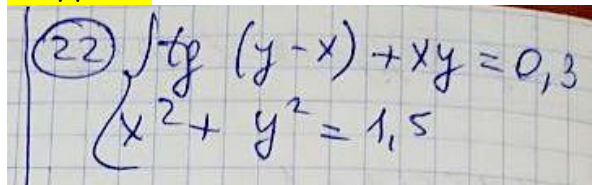 22 tg (y - x) + xy = 0,3
x² + y² = 1,5